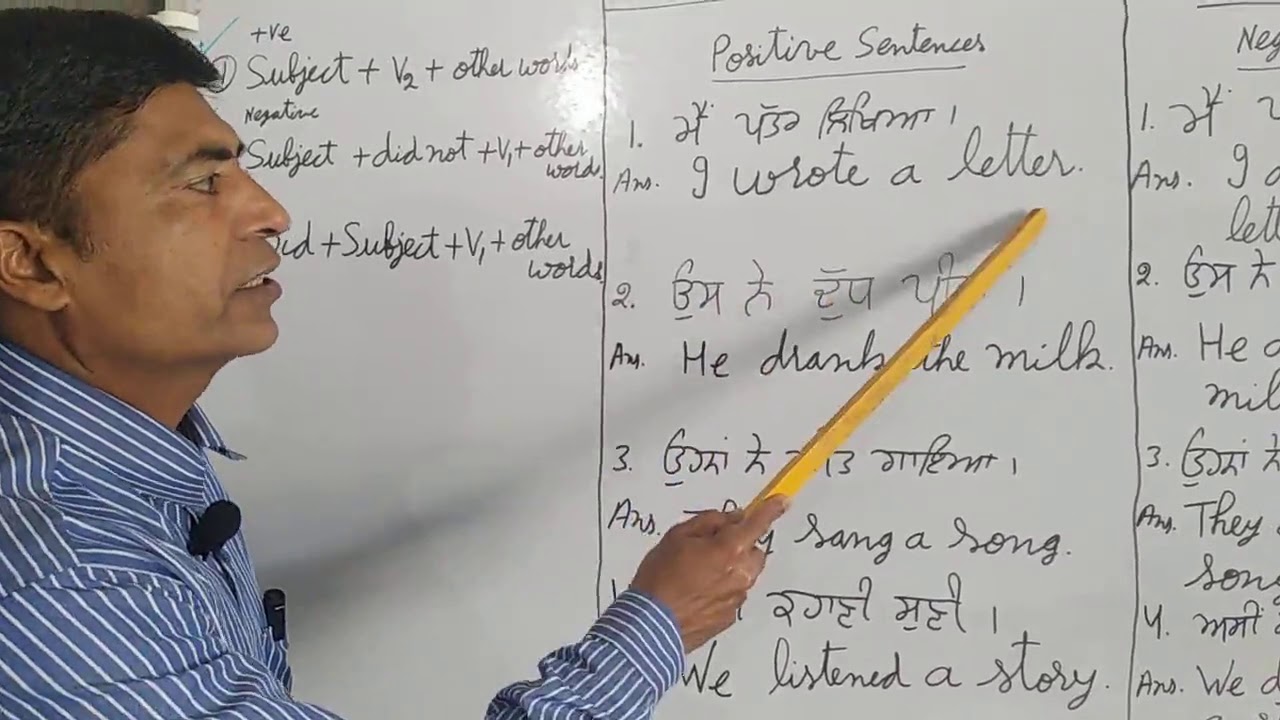 +ve
① Subject + V2 + other words
Negative
Subject + did not + V1 + other
words
+ Subject + V1 + other
words
Positive Sentences
1. ਮੈਂ ਪੱਤਰ ਲਿਖਿਆ ।
Ans. I wrote a letter.
2. ਉਸ ਨੇ ਦੁੱਧ ।
Ans. He drank the milk.
3. ਉਹਨਾਂ ਨੇ ਗਾਇਆ ।
Ans. sang a song.
ਕਹਾਣੀ ਸੁਣੀ ।
We listened a story.
1. ਮੈਂ
Ans. I
2. ਉਸ ਨੇ
Ans. He
3. ਉਹਨਾਂ ਨੇ
Ans. They
song
4. ਅਸੀਂ
Ans. We